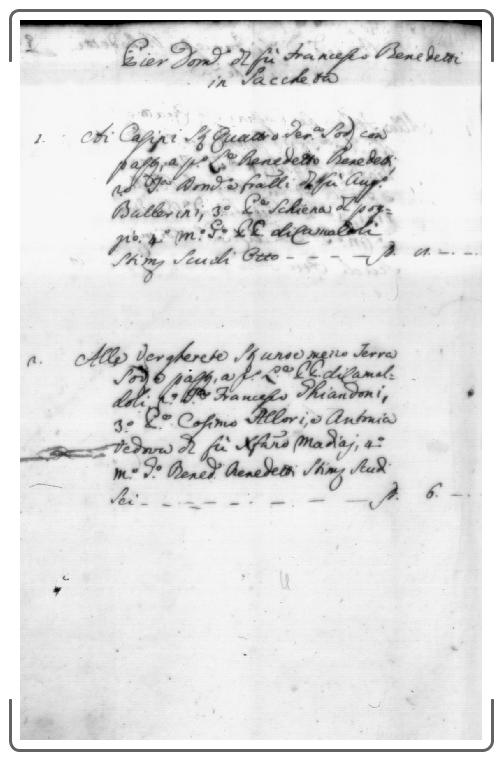 Pier Dom.º d fù Francesco Benedetti
in Sacchetta
1. Ai Casini Sq Quattro Ter.ª Sod, con
pass, a p.º L.ª Benedetto Benedetti
2.º Dom.º e fratlli d fù Aug.º
Ballerini, 3.º L.ª Schiena d pog=
gio, 4.º m.º d.º LL di Camaldoli
Stim Scudi Otto
2. Alle Vergherete Sq uno e mezzo Terra
Sod e pass, a p.º L.ª LL di Camal=
doli, 2.º Francesco Ghiandoni,
3.º L.ª Cosimo Allori, o Antonia
Vedova d fù Xfano Madiaj, 4.º
m.º d.º Bened.º Benedetti Stim Scudi
Sei 6.